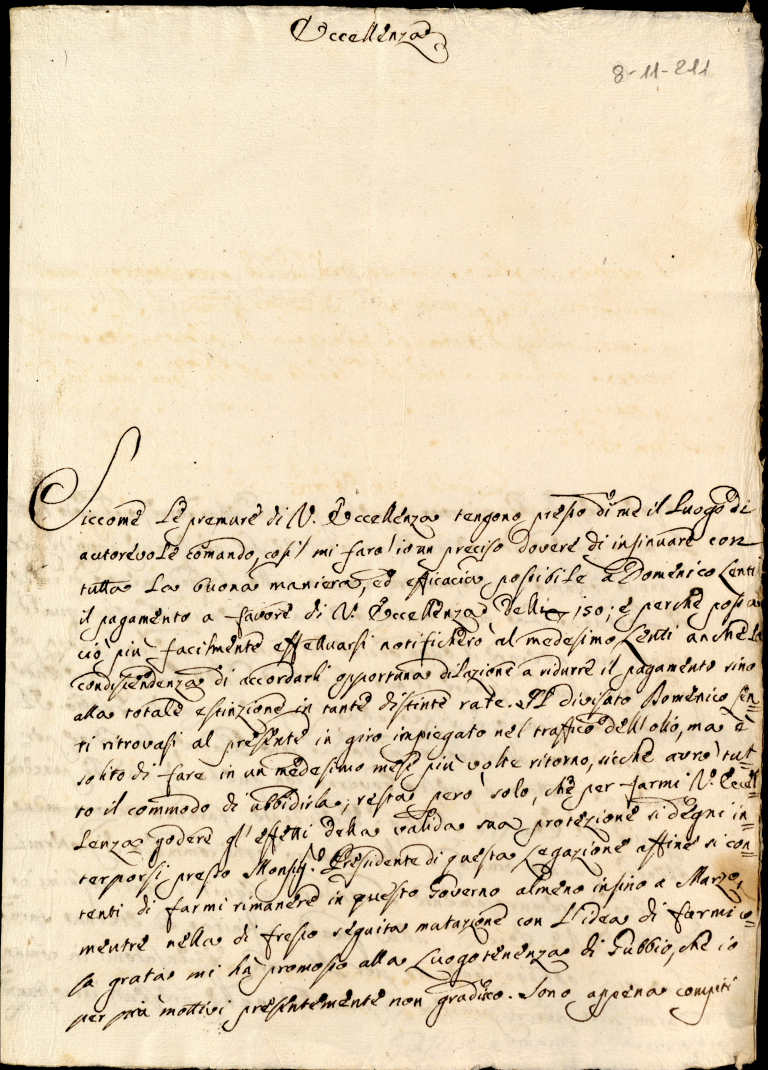 Eccellenza
8-11-211
Siccome le premure di V. Eccellenza tengono presso di me il luogo di
autorevole comando, così mi farò io un preciso dovere di insinuare con
tutta la buona maniera, ed efficacia possibile a Domenico Lenti
il pagamento a favore di V. Eccellenza delli 150; e perche possa
ciò più facilmente effettuarsi notificherò al medesimo Lenti anche la
condiscendenza di accordarli opportuna dilazione a ridurre il pagamento sino
alla totale estinzione in tante distinte rate. Il divisato Domenico Len=
ti ritrovasi al presente in giro impiegato nel traffico dell'olio, ma è
solito di fare in un medesimo mese più volte ritorno, sicche avrò tut=
to il commodo di ubbidirla; resta però solo, che per farmi V. Eccel=
lenza godere gl'effetti della valida sua protezione si degni in=
terporsi presso Monsig.r Presidente di questa Legazione affine si con=
tenti di farmi rimanere in questo Governo almeno insino a Marzo,
mentre nella di fresco seguita mutazione con l'idea di farmi co=
sa grata mi ha promosso alla Luogotenenza di Gubbio, che io
per più mottivi presentemente non gradisco. Sono appena compiti